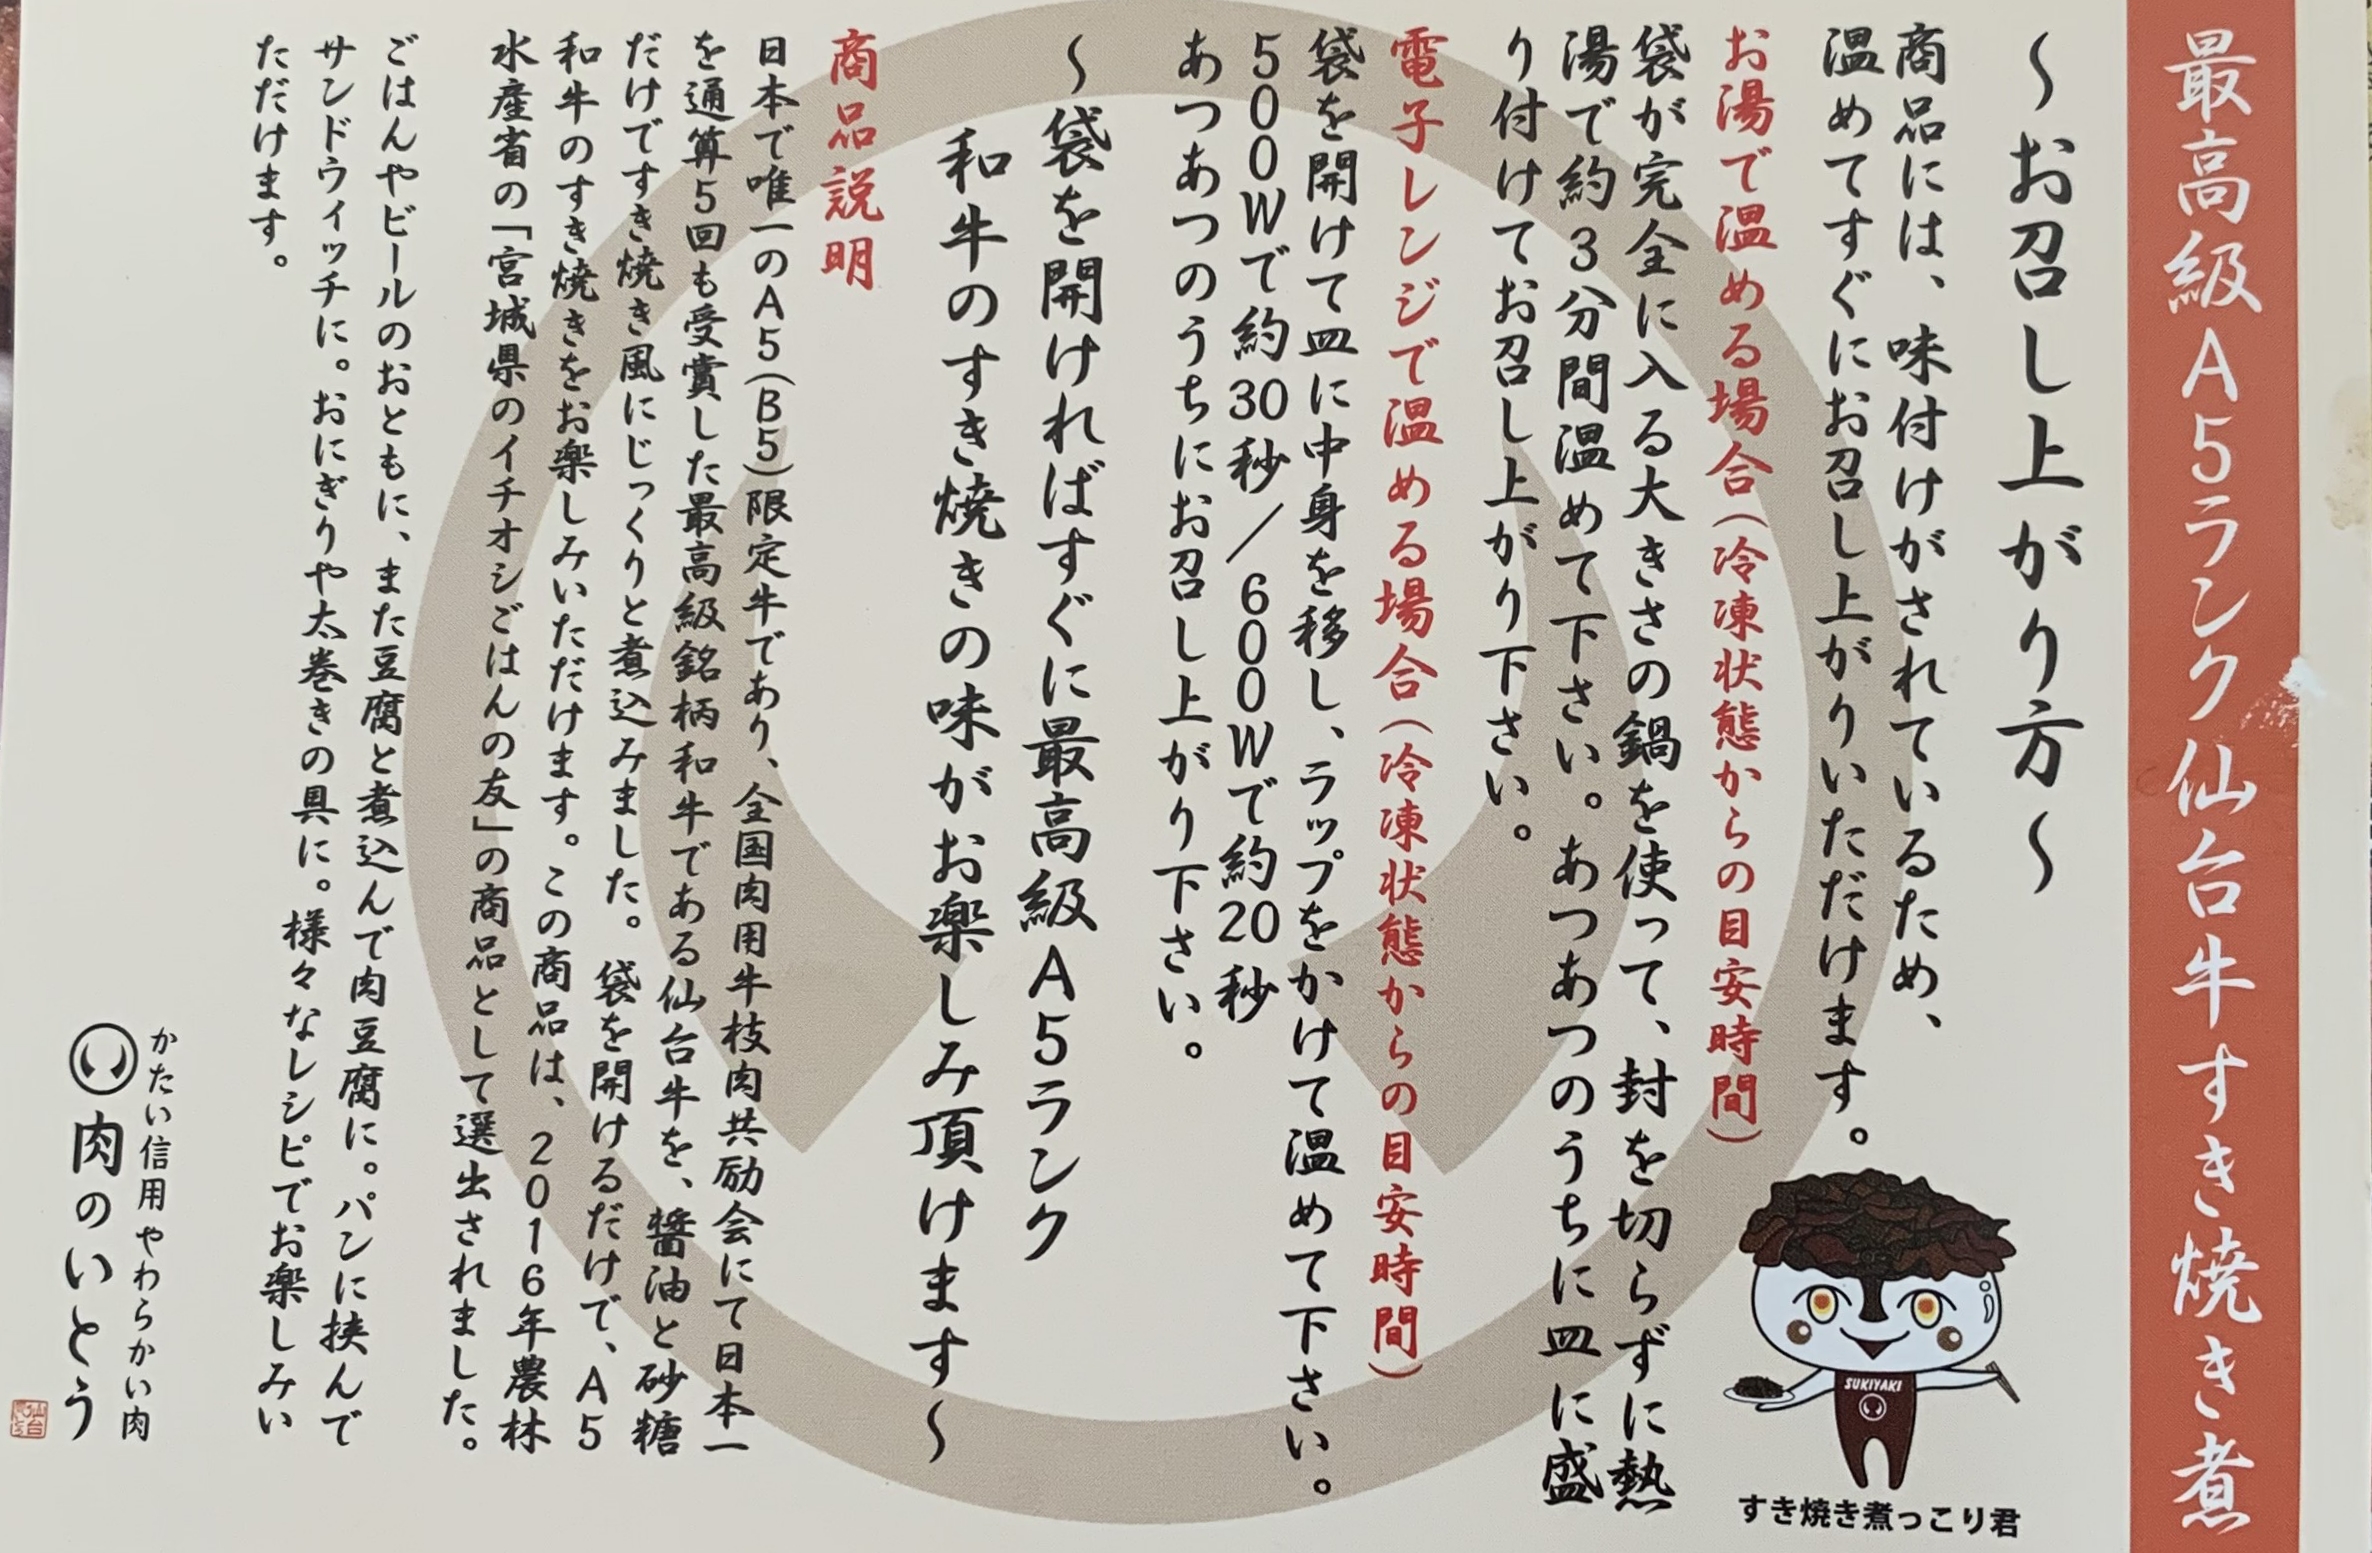 最高級A5ランク仙台牛すき焼き煮
～お召し上がり方～
商品には、味付けがされているため、
温めてすぐにお召し上がりいただけます。
お湯で温める場合(冷凍状態からの目安時間)
袋が完全に入る大きさの鍋を使って、封を切らずに熱
湯で約3分間温めて下さい。あつあつのうちに皿に盛
り付けてお召し上がり下さい。
電子レンジで温める場合(冷凍状態からの目安時間)
袋を開けて皿に中身を移し、ラップをかけて温めて下さい。
500Wで約30秒／600Wで約20秒
あつあつのうちにお召し上がり下さい。
～袋を開ければすぐに最高級A5ランク
和牛のすき焼きの味がお楽しみ頂けます～
商品説明
日本で唯一のA5(B5)限定牛であり、全国肉用牛枝肉共励会にて日本一
を通算5回も受賞した最高級銘柄和牛である仙台牛を、醤油と砂糖
だけですき焼き風にじっくりと煮込みました。袋を開けるだけで、A5
和牛のすき焼きをお楽しみいただけます。この商品は、2016年農林
水産省の「宮城県のイチオシごはんの友」の商品として選出されました。
ごはんやビールのおともに、また豆腐と煮込んで肉豆腐に。パンに挟んで
サンドウィッチに。おにぎりや太巻きの具に。様々なレシピでお楽しみい
ただけます。
かたい信用やわらかい肉
い 肉のいとう
SUKIYAKI
すき焼き煮っこり君